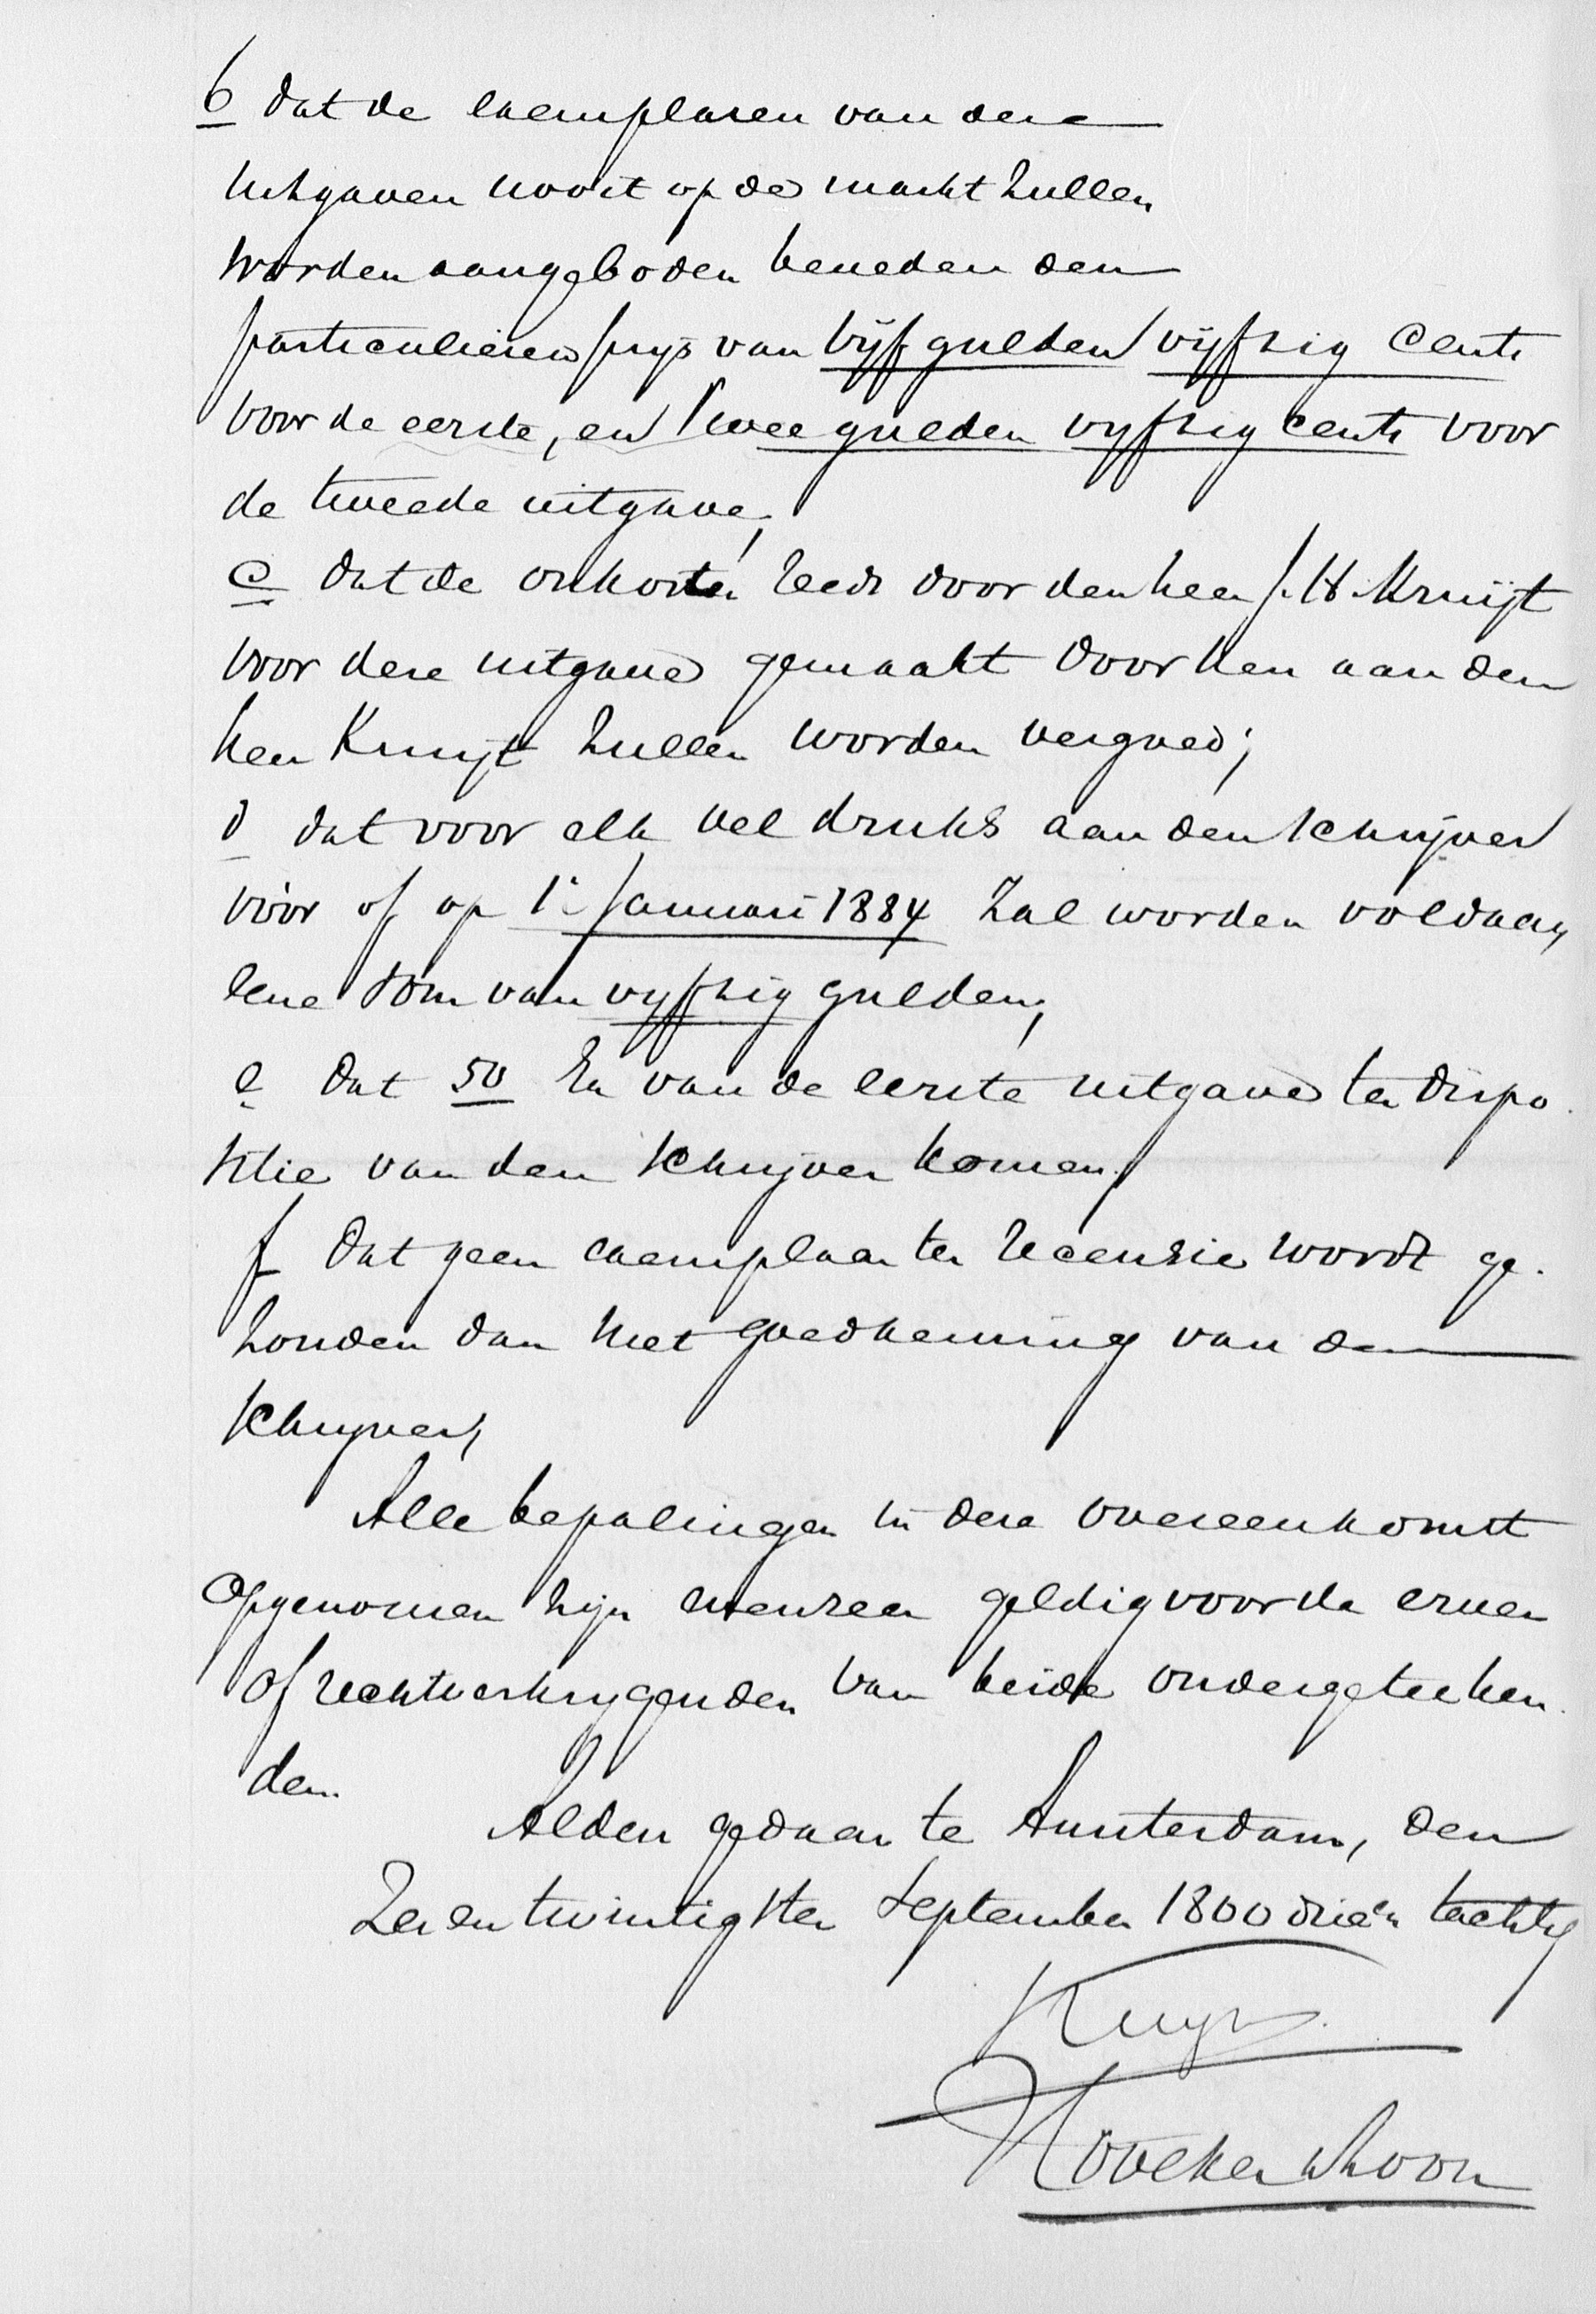 b dat de exemplaren van deze
uitgaven nooit op de markt zullen
worden aangeboden beneden den
particulieren prijs van vijf gulden vijftig cents
voor de eerste, en twee gulden vijftig cents voor
de tweede uitgave;
c dat de onkosten reeds door den heer J. H. Kruijt
voor deze uitgave gemaakt door hen aan den
heer Kruijt zullen worden vergoed;
d dat voor elk vel druks aan den schrijver
vóór of op 1e Januari 1884 zal worden voldaan
eene som van vijftig gulden;
e dat 50 Ex van de eerste uitgave ter dispo
sitie van den schrijver komen;
f dat geen exemplaar ter recensie wordt ge-
zonden dan met goedkeuring van den
schrijver;
Alle bepalingen in deze overeenkomst
opgenomen zijn evenzeer geldig voor de erven
of rechtverkrijgenden van beide ondergeteeken
den.
Aldus gedaan te Amsterdam, den
Zes en twintigsten September 1800 drieën tachtig
Kuyper
Höveker & Zoon